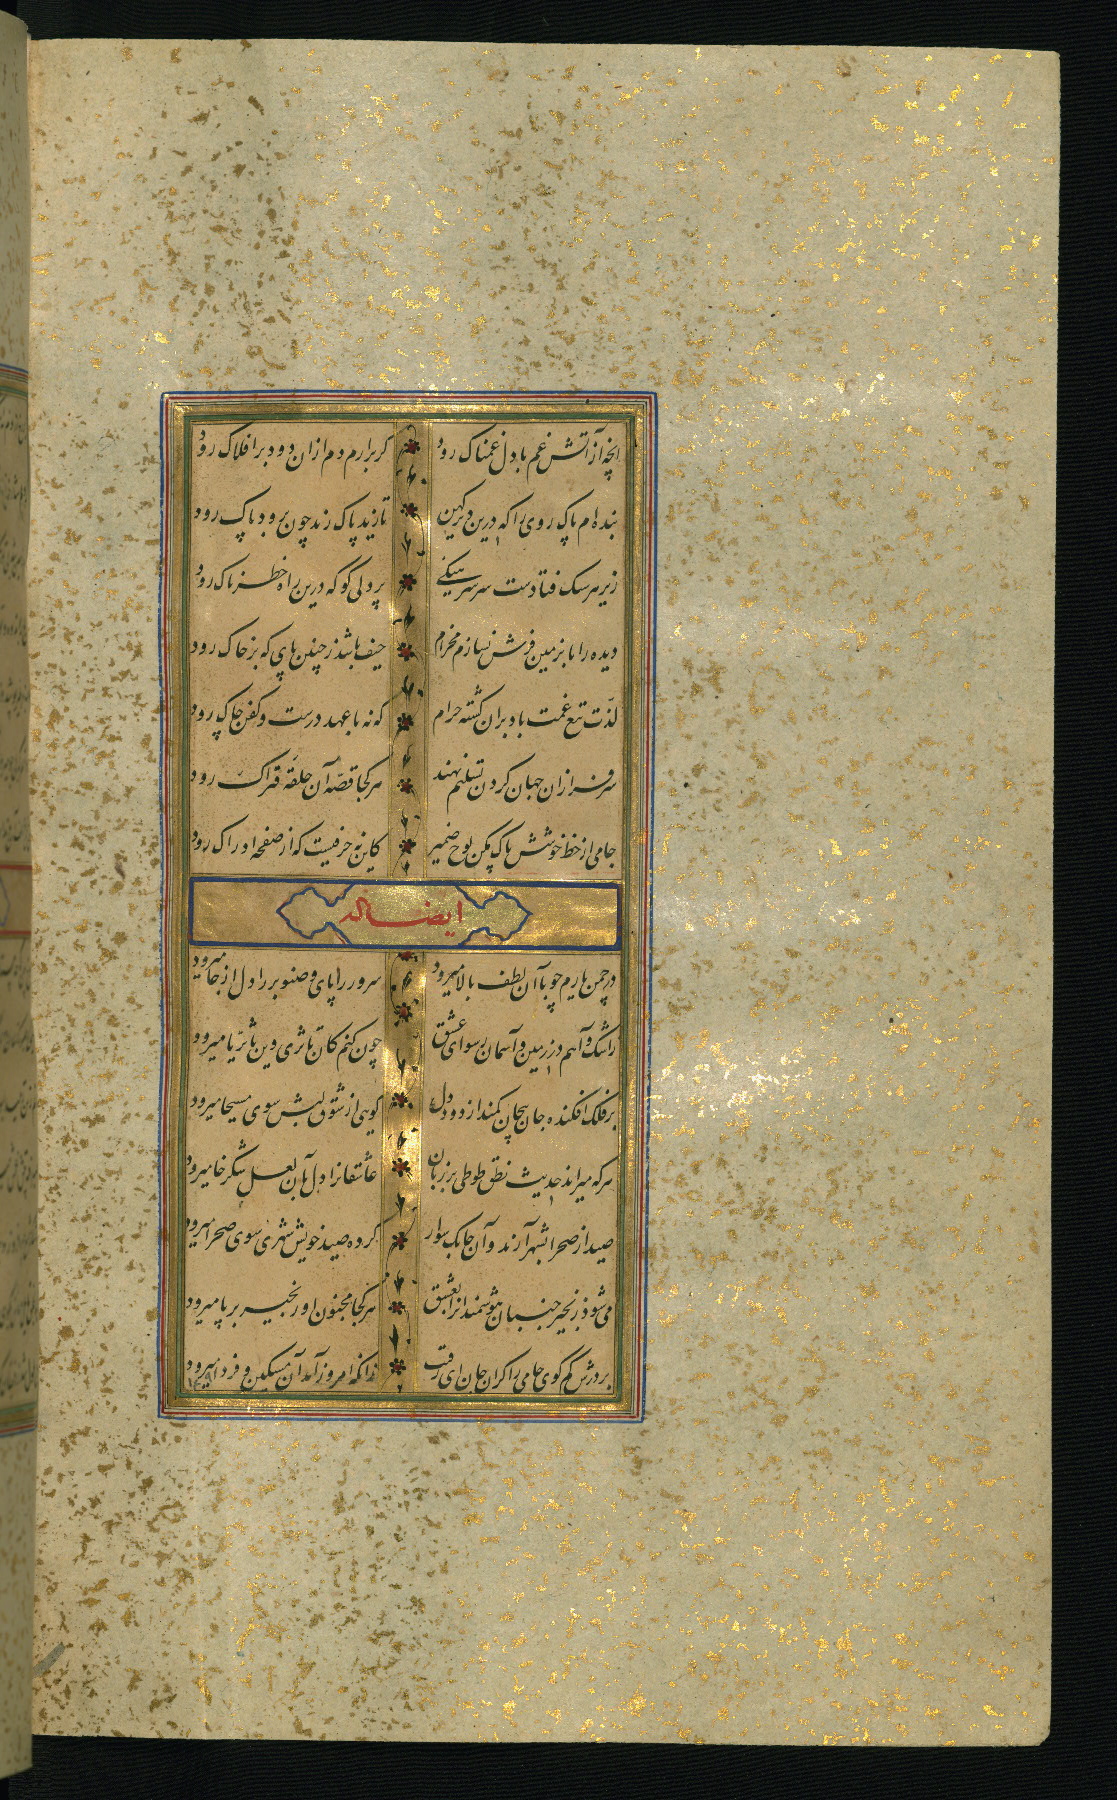 آنچه از آتش غم با دل غمناک رود گر برآرم دم ازان دود بر افلاک رود
بنده‌ام پاک روی را که درین دیر کهن تا زید پاک زید چون برود پاک رود
زیر هر سنک فتادست سر سرهنکی پر دلی کو که درین راه خطرناک رود
دیده را تا بزمین فرش نسازم مخرام حیف باشد ز چنین پای که بر خاک رود
لذت تیغ غمت باد بران کشته حرام که نه با عهد درست و کفن چاک رود
سرفرازان جهان کردن تسلیم نهند هر کجا قصهٔ آن حلقهٔ فتراک رود
جامی از خط خوشش پاک مکن لوح ضمیر کاین نه حرفیست که از صفحه ادراک رود
ایضا له
در چمن یارم چو با آن لطف بالا میرود سرو را پای و صنوبر را دل از جا میرود
ز اشک و آهم در زمین و آسمان رسوای عشق چون کنم کان تا ثری وین تا ثریا میرود
بر فلک افکنده جان پیچان کمند از دود دل کویی از شوق لبش سوی مسیحا میرود
هر که میراند حدیث نطق طوطی بر زبان عاشقانرا دل بآن لعل شکرخا میرود
صید از صحرا بشهر آرند و آن چابک سوار کرده صید خویش شهری سوی صحرا میرود
می‌شود زنجیر جنبان هوشمندانرا بعشق هر کجا مجنون او زنجیر بر پا میرود
بر درش کم کوی جامی را کران جان ای رقیب زانکه امروز آمد آن مسکین و فردا میرود